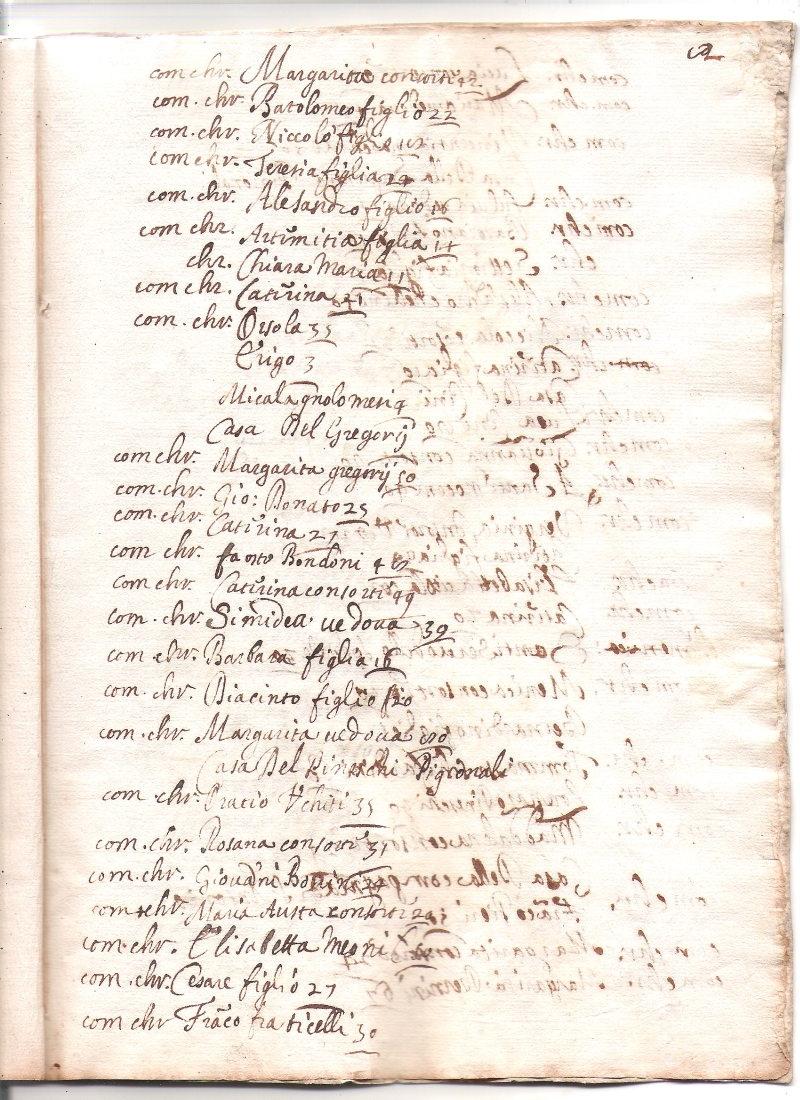 2
com chr. Margarita consorte 42
com. chr. Batolomeo figlio 22
com. chr. Niccolò figlio
com chr. Teresia figlia 24
com. chr. Alesandro figlio 16
com. chr. Artimitia figlia 14
chr. Chiara Maria 11
com chr. Catirina
com. chr. Orsola 35
3
Casa Del Gregorij
com chr. Margarita gregorij 50
com. chr. Gio: Donato 25
com chr. Catirina 27
com chr. fosto Bondoni
com chr. Catirina consorti 49
com. chr. Simidea vedova 39
com. chr. Barbara figlia 16
com. chr. Diacinto figlio
com. chr. Margarita vedova
Casa Del
com chr. Oratio 35
com. chr. Rosana consorti 31
com. chr. Giovãni
com chr. Maria consorti
com. chr. Elisabetta Meoni
com. chr. Cesare figlio 27
com chr Frãco fraticelli 30